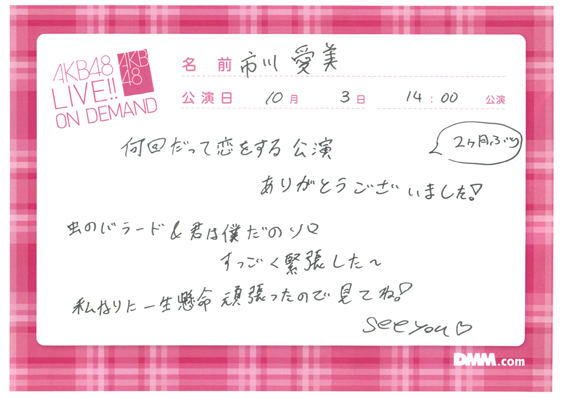 AKB48
LIVE!!
ON DEMAND
AKB
48
名前 市川愛美
公演日 10月 3日 14:00 公演
何回だって恋をする公演
2ヶ月ぶり
ありがとうございました!
虫のバラード&君は僕だのソロ
すっごく緊張した〜
私なりに一生懸命頑張ったので見てね!
see you♡
DMM.com